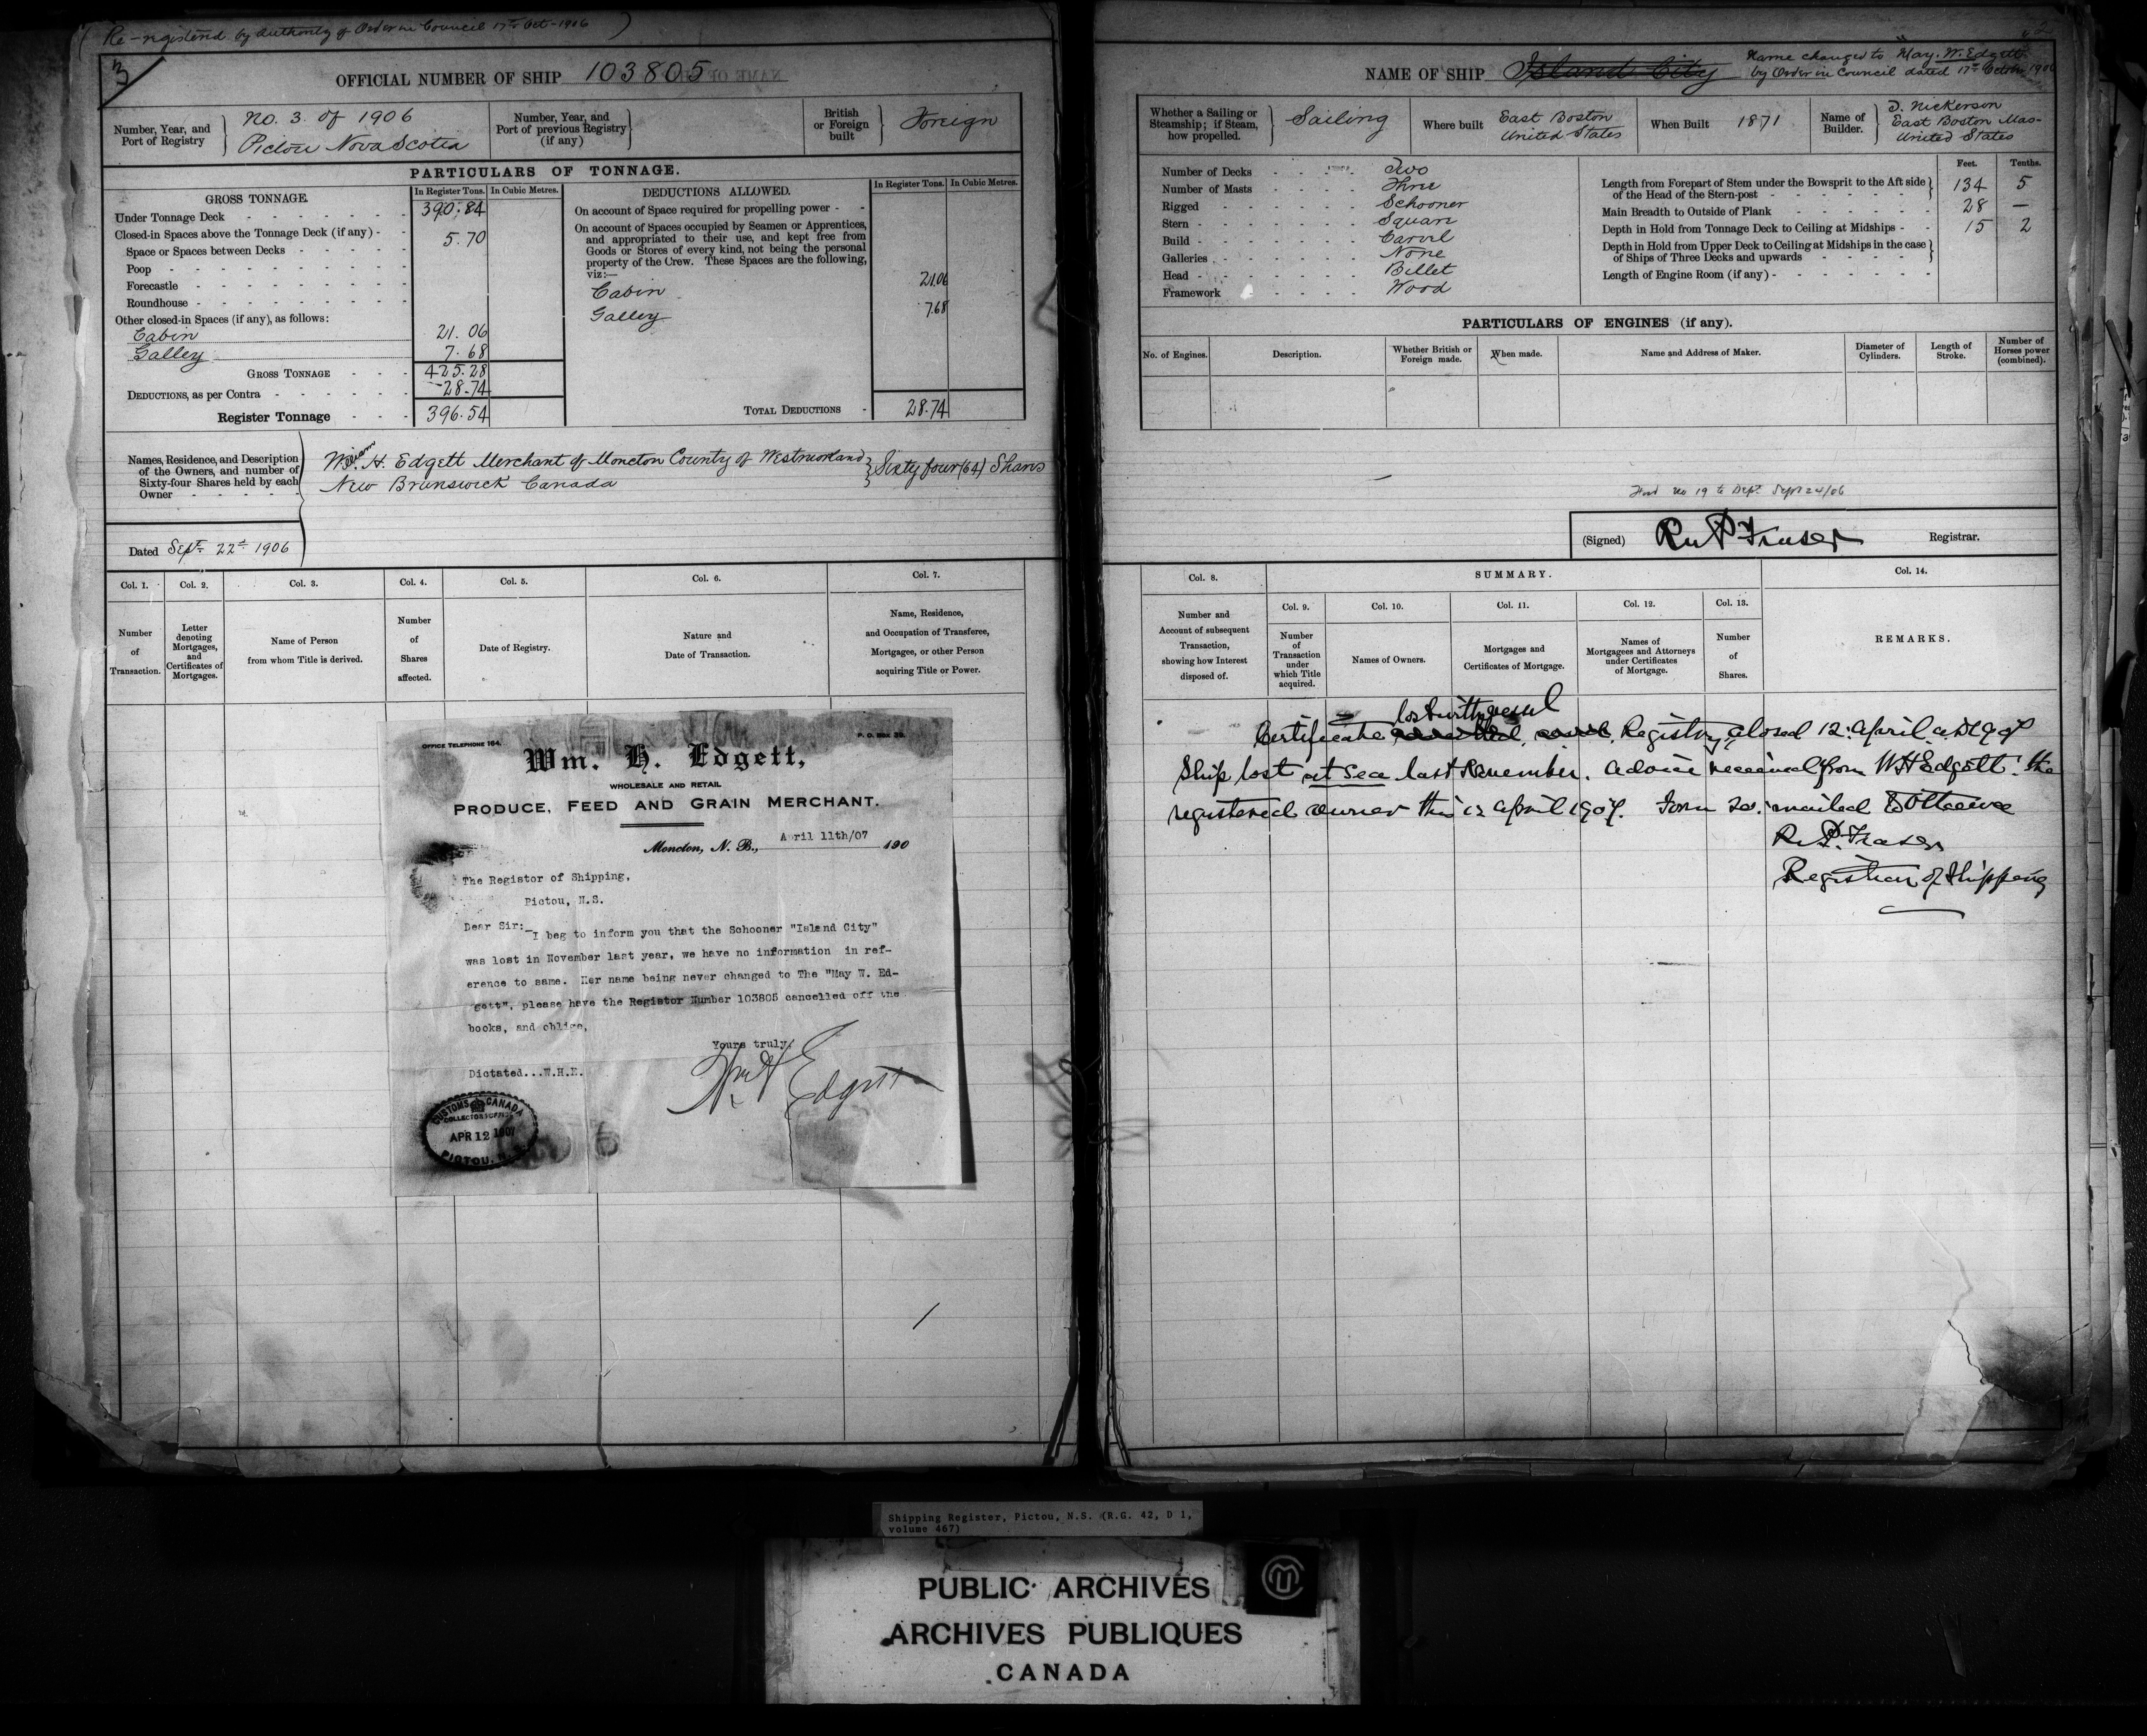 ( Re-registered by authority of Order in Council 17th Oct - 1906 )
3
OFFICIAL NUMBER OF SHIP 103805
Number, Year, and
Port of Registry
No. 3. of 1906
Pictou Nova Scotia
Number, Year, and
Port of previous Registry
(if any)
British
or Foreign
built
Foreign
PARTICULARS OF TONNAGE.
GROSS TONNAGE.
In Register Tons.
In Cubic Metres.
Under Tonnage Deck 390.84
Closed-in Spaces above the Tonnage Deck (if any) - 5.70
Space or Spaces between Decks
Poop
Forecastle
Roundhouse
Other closed-in Spaces (if any), as follows:
Cabin 21.06
Galley 7.68
GROSS TONNAGE 425.28
DEDUCTIONS, as per Contra 28.74
Register Tonnage 396.54
DEDUCTIONS ALLOWED.
In Register Tons.
In Cubic Metres.
On account of Space required for propelling power -
On account of Spaces occupied by Seamen or Apprentices,
and appropriated to their use, and kept free from
Goods or Stores of every kind, not being the personal
property of the Crew. These Spaces are the following,
viz:—
Cabin 21.06
Galley 7.68
TOTAL DEDUCTIONS - 28.74
Names, Residence, and Description
of the Owners, and number of
Sixty-four Shares held by each
Owner
William H. Edgett Merchant of Moncton County of Westmorland } Sixty four (64) Shares
New Brunswick Canada
Dated Sept 22nd 1906
Col. 1.
Number
of
Transaction.
Col. 2.
Letter
denoting
Mortgages,
and
Certificates of
Mortgages.
Col. 3.
Name of Person
from whom Title is derived.
Col. 4.
Number
of
Shares
affected.
Col. 5.
Date of Registry.
Col. 6.
Nature and
Date of Transaction.
Col. 7.
Name, Residence,
and Occupation of Transferee,
Mortgagee, or other Person
acquiring Title or Power.
OFFICE TELEPHONE 164.
P. O. BOX
Wm. H. Edgett,
WHOLESALE AND RETAIL
PRODUCE, FEED AND GRAIN MERCHANT.
Moncton, N. B., April 11th/07 190
The Registor of Shipping,
Pictou, N.S.
Dear Sir:-
I beg to inform you that the Schooner "Island City"
was lost in November last year, we have no information in ref-
erence to same. Her name being never changed to The "May W. Ed-
gett", please have the Registor Number 103805 cancelled off the
books, and oblige,
Yours truly,
Wm H Edgett
Dictated...W.H.E.
CUSTOMS CANADA
COLLECTOR'S OFFICE
APR 12 1907
PICTOU, N.S.
NAME OF SHIP Island City
Name changed to "May. W. Edgett"
by Order in Council dated 17th October 1906
Whether a Sailing or
Steamship; if Steam,
how propelled.
Sailing
Where built
East Boston
United States
When Built
1871
Name of
Builder.
J. Nickerson
East Boston Mas-
United States
Number of Decks Two
Number of Masts Three
Rigged Schooner
Stern Square
Build Carvel
Galleries None
Head Billet
Framework Wood
Feet.
Tenths.
Length from Forepart of Stem under the Bowsprit to the Aft side
of the Head of the Stern-post 134 5
Main Breadth to Outside of Plank 28 —
Depth in Hold from Tonnage Deck to Ceiling at Midships 15 2
Depth in Hold from Upper Deck to Ceiling at Midships in the case
of Ships of Three Decks and upwards
Length of Engine Room (if any)
PARTICULARS OF ENGINES (if any).
No. of Engines.
Description.
Whether British or
Foreign made.
When made.
Name and Address of Maker.
Diameter of
Cylinders.
Length of
Stroke.
Number of
Horses power
(combined).
No 19 to Dept. Sept 24/06
(Signed) Registrar.
Fraser
Col. 8.
Number and
Account of subsequent
Transaction,
showing how Interest
disposed of.
SUMMARY.
Col. 9.
Number
of
Transaction
under
which Title
acquired.
Col. 10.
Names of Owners.
Col. 11.
Mortgages and
Certificates of Mortgage.
Col. 12.
Names of
Mortgagees and Attorneys
under Certificates
of Mortgage.
Col. 13.
Number
of
Shares.
Col. 14.
REMARKS.
lost with vessel
Certificate Registry closed 12 April A.D. 1907
Ship lost at sea last November. advice received from W H Edgett the
registered owner this 12 April 1907. Form 20 mailed to Ottawa
Fraser
Registrar of Shipping
Shipping Register, Pictou, N.S. (R.G. 42, D 1,
volume 467)
PUBLIC ARCHIVES
ARCHIVES PUBLIQUES
CANADA